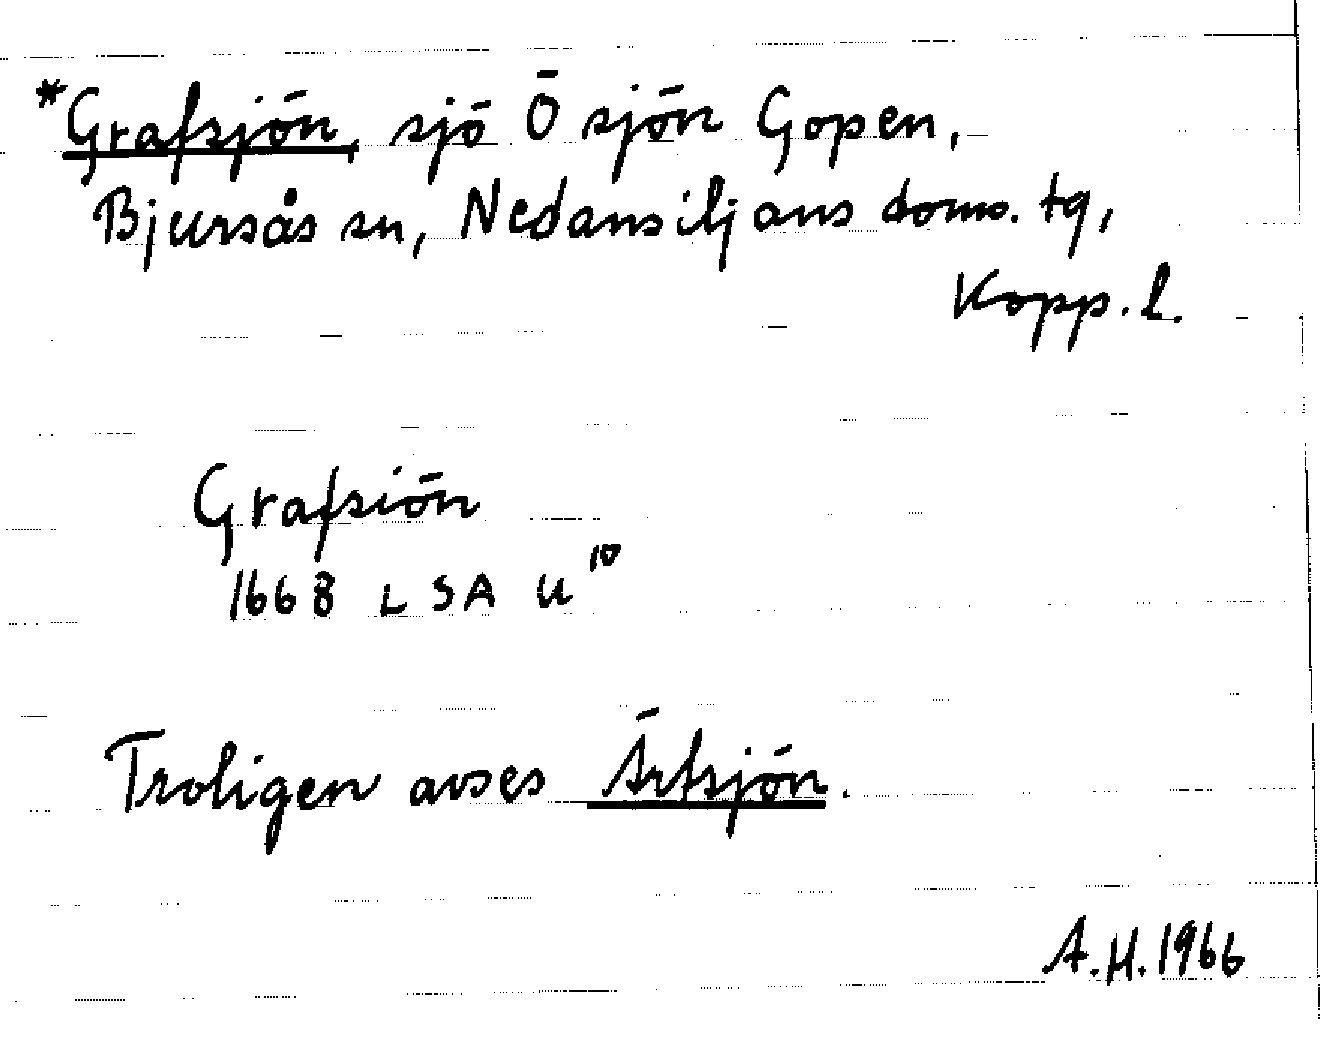 *Grafsjön, sjö Ö sjön Gopen,
Bjursås sn, Nedansiljans doms. tg,
Kopp. l.
Grafsiön
1668 LSA U¹⁰
Troligen avses Ärtsjön.
A.H. 1966